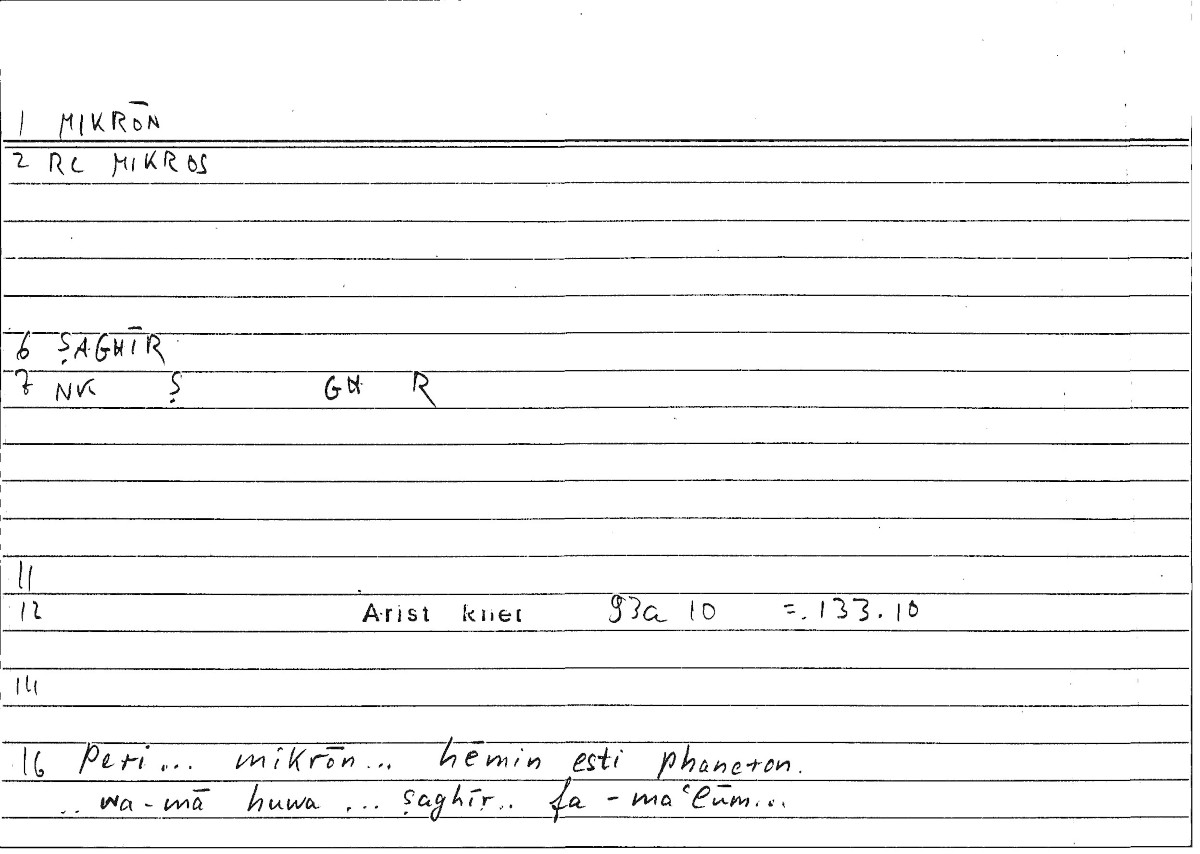 1 MIKRŌN
2 RC MIKROS
6 ṢAGHĪR
7 NK Ṣ GH R
11
12 Arist 93a 10 =.133.10
14
16 Peri... mikrōn... hēmin esti phaneron.
.. wa-mā huwa ... ṣaghīr.. fa-maʿlūm...